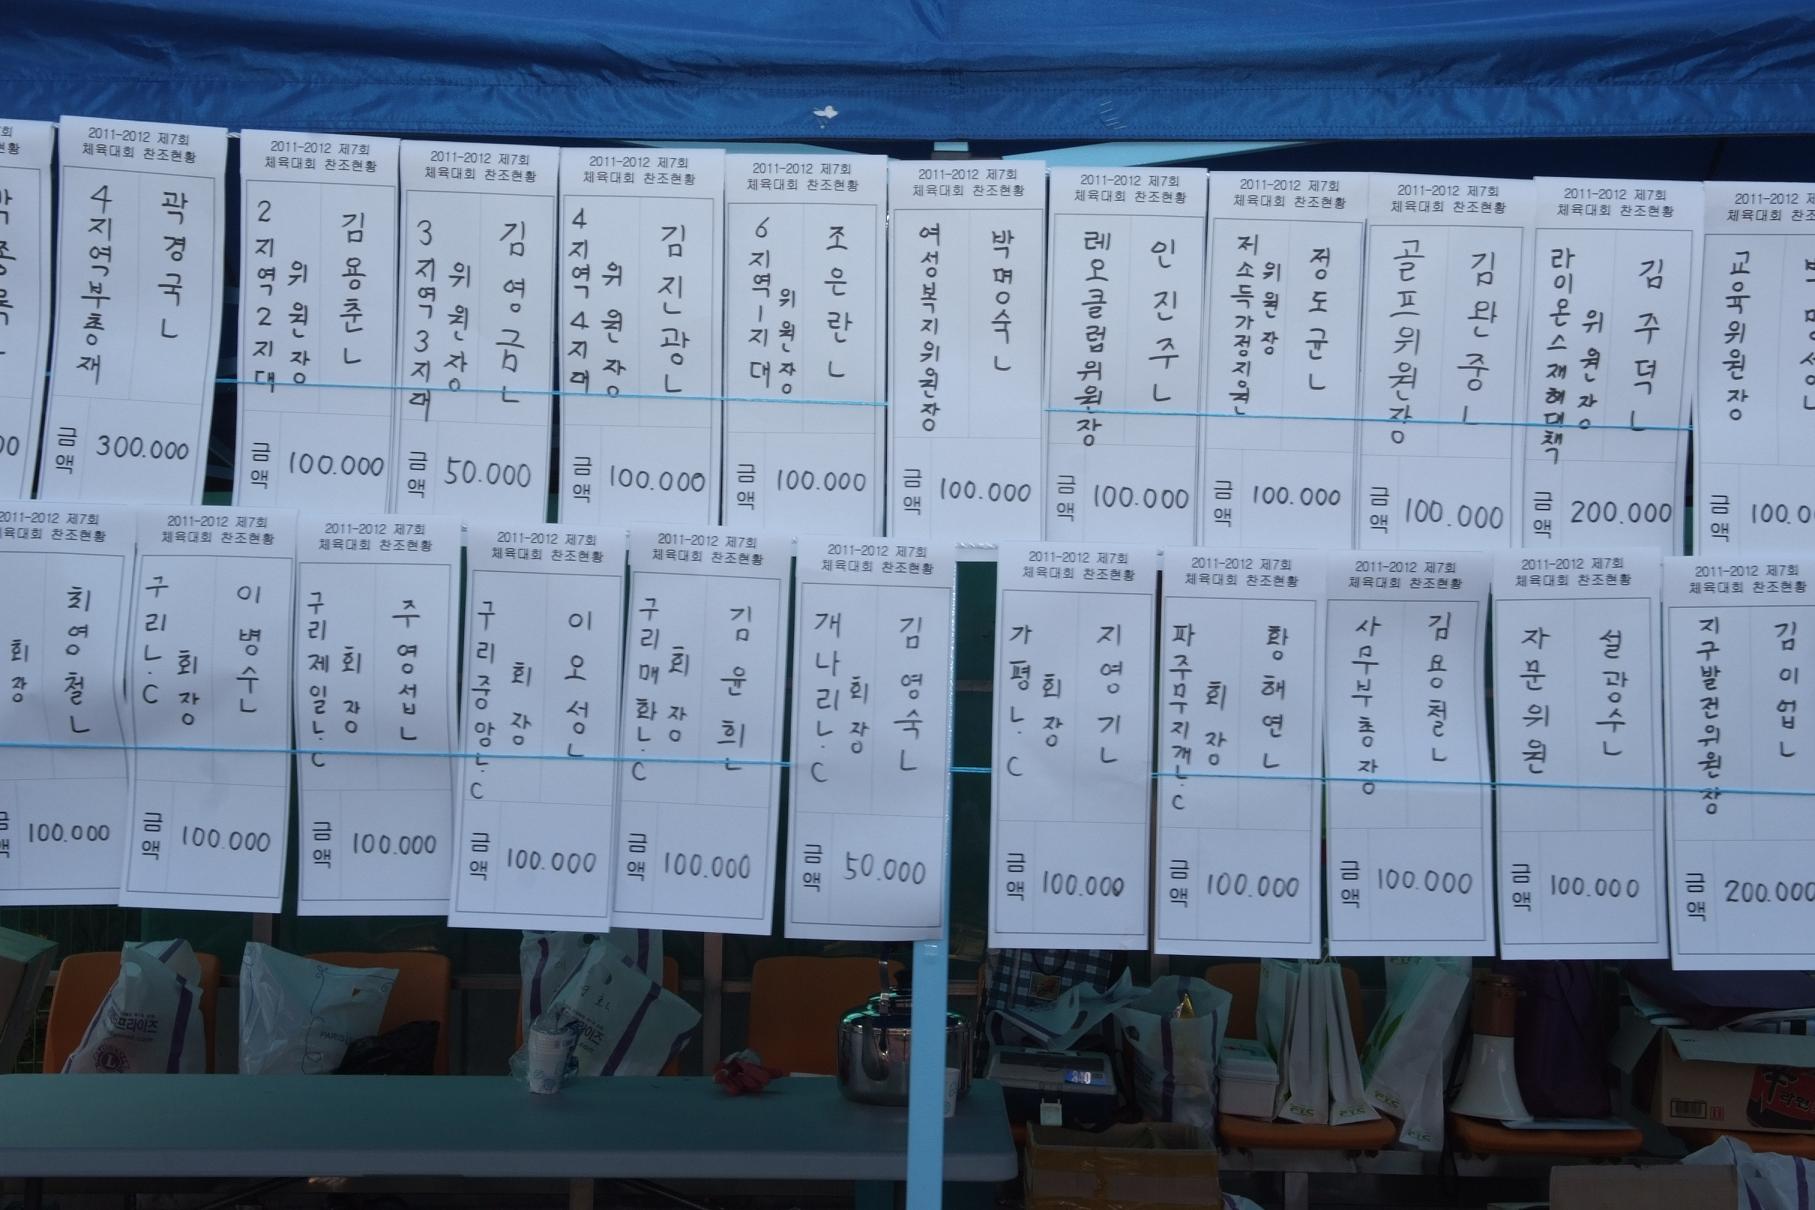 2011-2012 제7회
체육대회 찬조현황
4지역부총재
곽경국L
금액 300.000
2011-2012 제7회
체육대회 찬조현황
2지역2지대
위원장
김용춘L
금액 100.000
2011-2012 제7회
체육대회 찬조현황
3지역3지대
위원장
김영금L
금액 50.000
2011-2012 제7회
체육대회 찬조현황
4지역4지대
위원장
김진광L
금액 100.000
2011-2012 제7회
체육대회 찬조현황
6지역1지대
위원장
조은란L
금액 100.000
2011-2012 제7회
체육대회 찬조현황
여성복지위원장
박명숙L
금액 100.000
2011-2012 제7회
체육대회 찬조현황
레오클럽위원장
인진주L
금액 100.000
2011-2012 제7회
체육대회 찬조현황
저소득가정지원
위원장
정도균L
금액 100.000
2011-2012 제7회
체육대회 찬조현황
골프위원장
김완중L
금액 100.000
2011-2012 제7회
체육대회 찬조현황
라이온스재해대책
위원장
김주덕L
금액 200.000
2011-2012 제7
체육대회 찬조
교육위원장
금액 100.0
2011-2012 제7회
체육대회 찬조현황
회장
최영철L
금액 100.000
2011-2012 제7회
체육대회 찬조현황
구리L.C
회장
이병순L
금액 100.000
2011-2012 제7회
체육대회 찬조현황
구리제일L.C
회장
주영섭L
금액 100.000
2011-2012 제7회
체육대회 찬조현황
구리중앙L.C
회장
이오성L
금액 100.000
2011-2012 제7회
체육대회 찬조현황
구리매화L.C
회장
김윤희L
금액 100.000
2011-2012 제7회
체육대회 찬조현황
개나리L.C
회장
김영숙L
금액 50.000
2011-2012 제7회
체육대회 찬조현황
가평L.C
회장
지영기L
금액 100.000
2011-2012 제7회
체육대회 찬조현황
파주무지갠L.C
회장
황해연L
금액 100.000
2011-2012 제7회
체육대회 찬조현황
사무부총장
김용철L
금액 100.000
2011-2012 제7회
체육대회 찬조현황
자문위원
설광수L
금액 100.000
2011-2012 제7회
체육대회 찬조현황
지구발전위원장
김이업L
금액 200.000